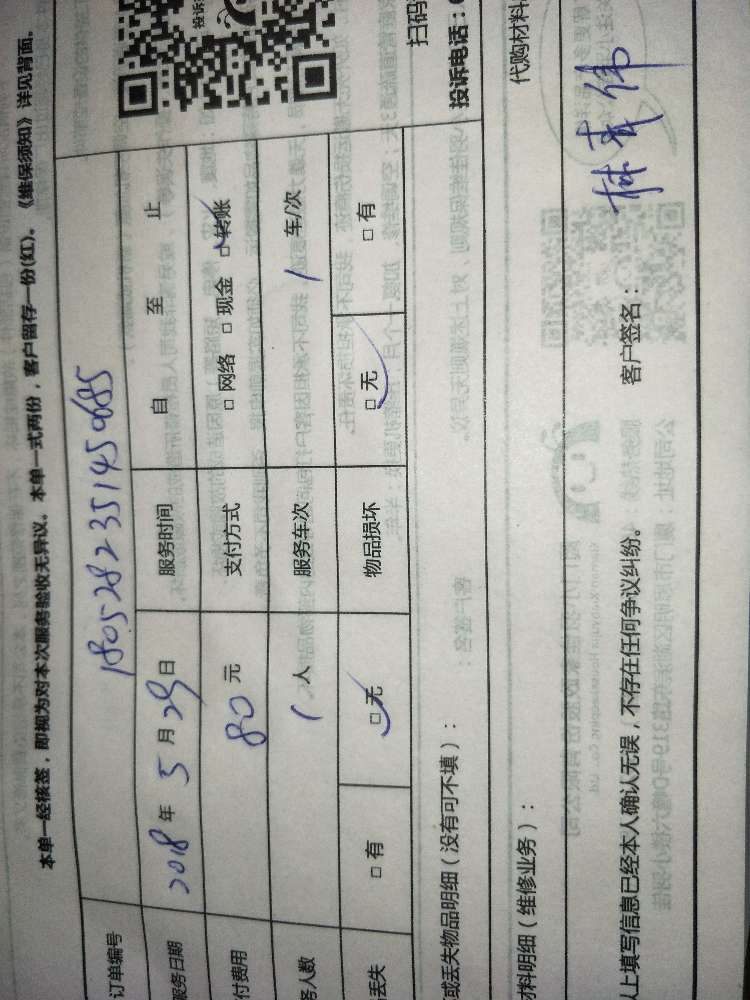 本单一经核签，即视为对本次服务验收无异议。本单一式两份，客户留存一份(红)。《维保须知》详见背面。
订单编号 1805282351450685
服务日期 2018 年 5 月 29 日 服务时间 自 至 止
付费用 80 元 支付方式 □ 网络 □ 现金 □ 转账
务人数 1 人 服务车次 1 车/次
丢失 □ 有 □ 无 物品损坏 □ 无 □ 有
或丢失物品明细（没有可不填）：
材料明细（维修业务）：
上填写信息已经本人确认无误，不存在任何争议纠纷。
客户签名：
投诉
扫码
投诉电话：
代购材料